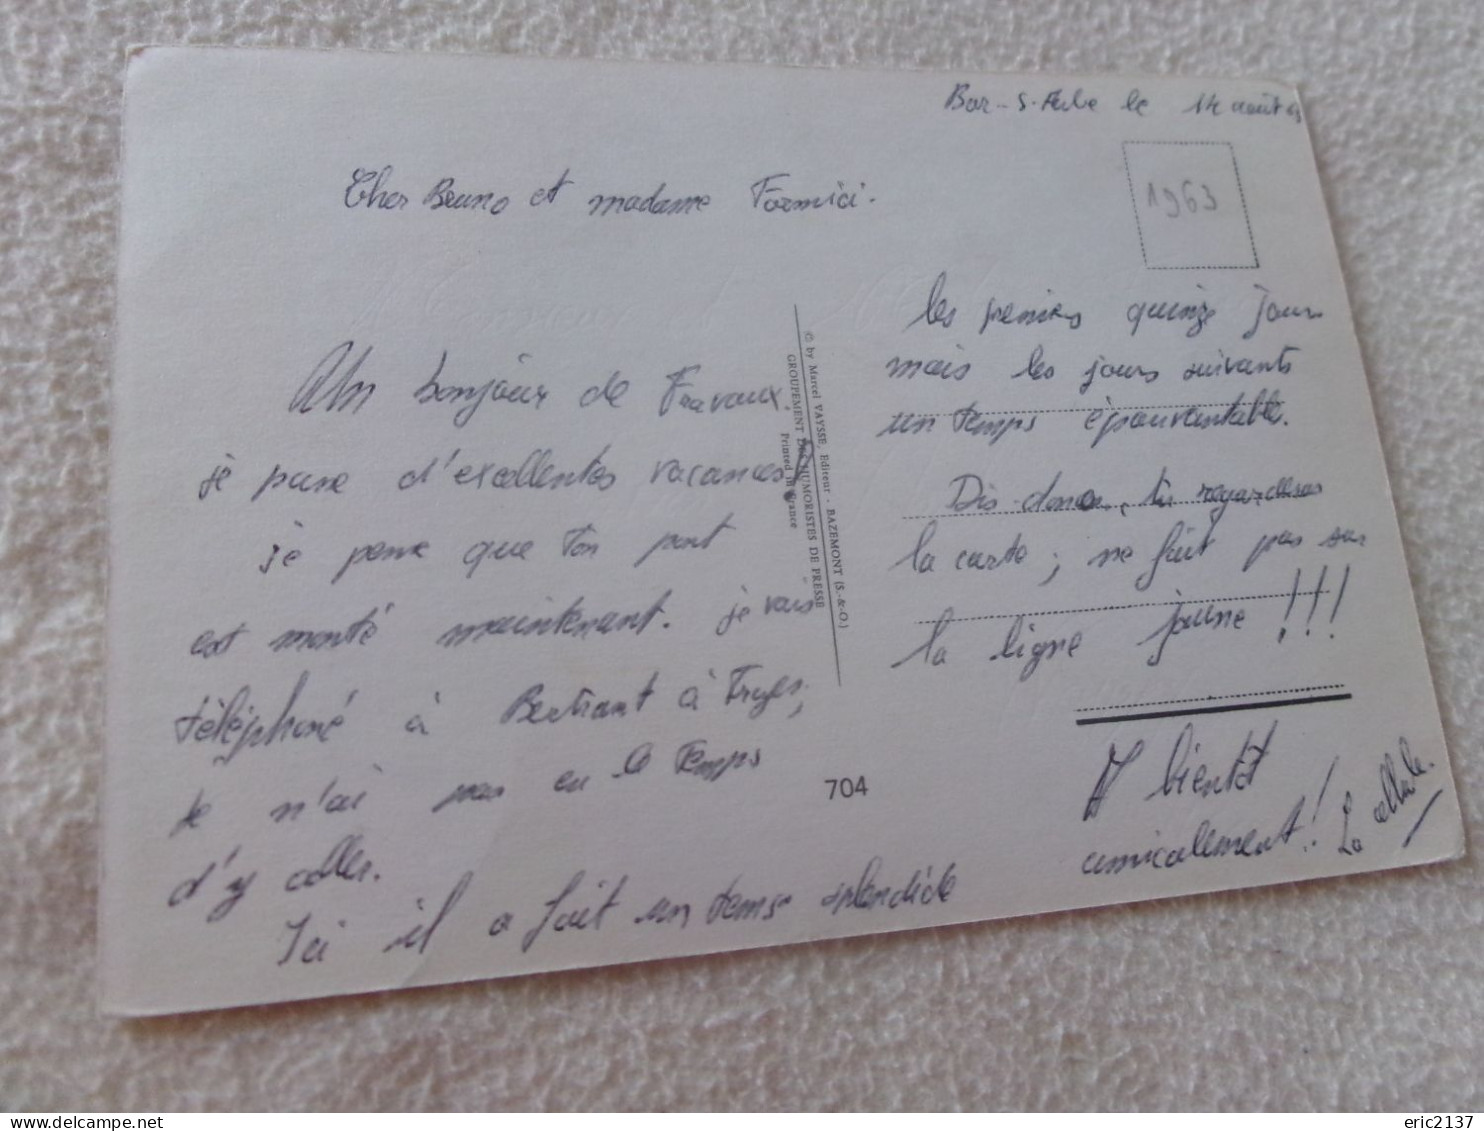 Bar-s-Aube le 14 août 63
Cher Bruno et madame Formici.
1963
Un bonjour de Fravaux.
je passe d'excellentes vacances
je pense que ton port
est monté maintenant. je vais
téléphoné à Bertrant à Troyes,
je n'ai pas eu le temps
d'y aller.
Ici il a fait un temps splendide
© by Marcel VAYSSE, Editeur - BAZEMONT (S.-&-O.)
GROUPEMENT DES HUMORISTES DE PRESSE
Printed in France
704
les premiers quinze jours
mais les jours suivants
un temps épouvantable.
Dis donc, tu regarderas
la carte; ne fait pas sur
la ligne jaune !!!
A bientôt
amicalement!
eric2137